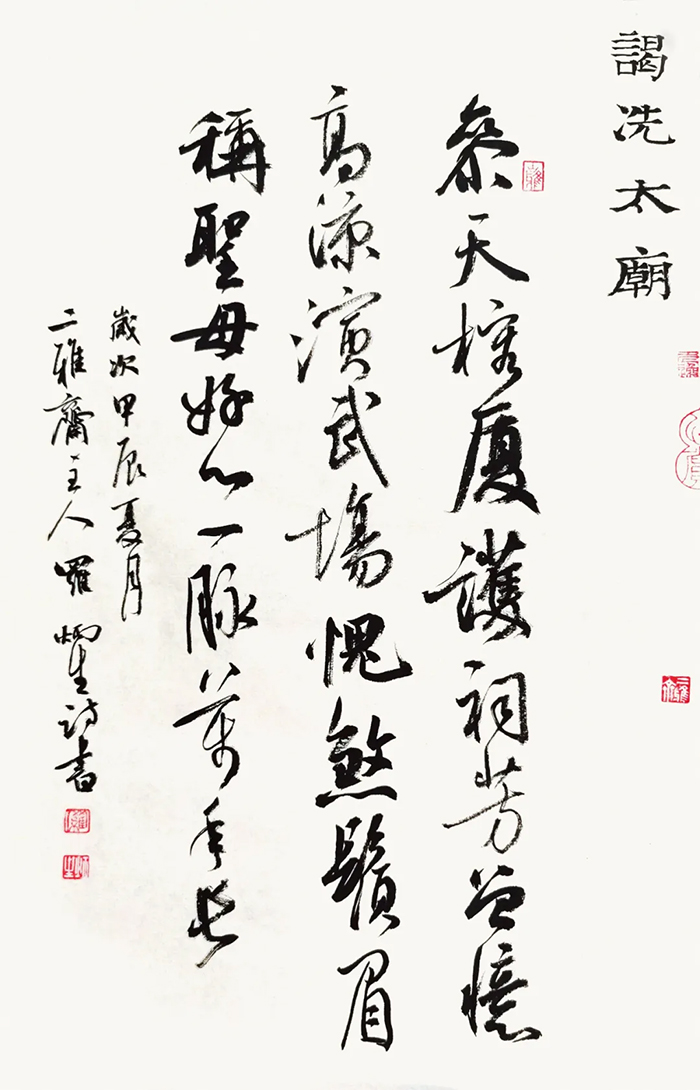 謁冼太廟
參天榕廈護祠芳曾憶
高涼演武場愧煞鬚眉
稱聖母好心一脉萬年長
歲次甲辰夏月
二雅齋主人羅炳生詩書